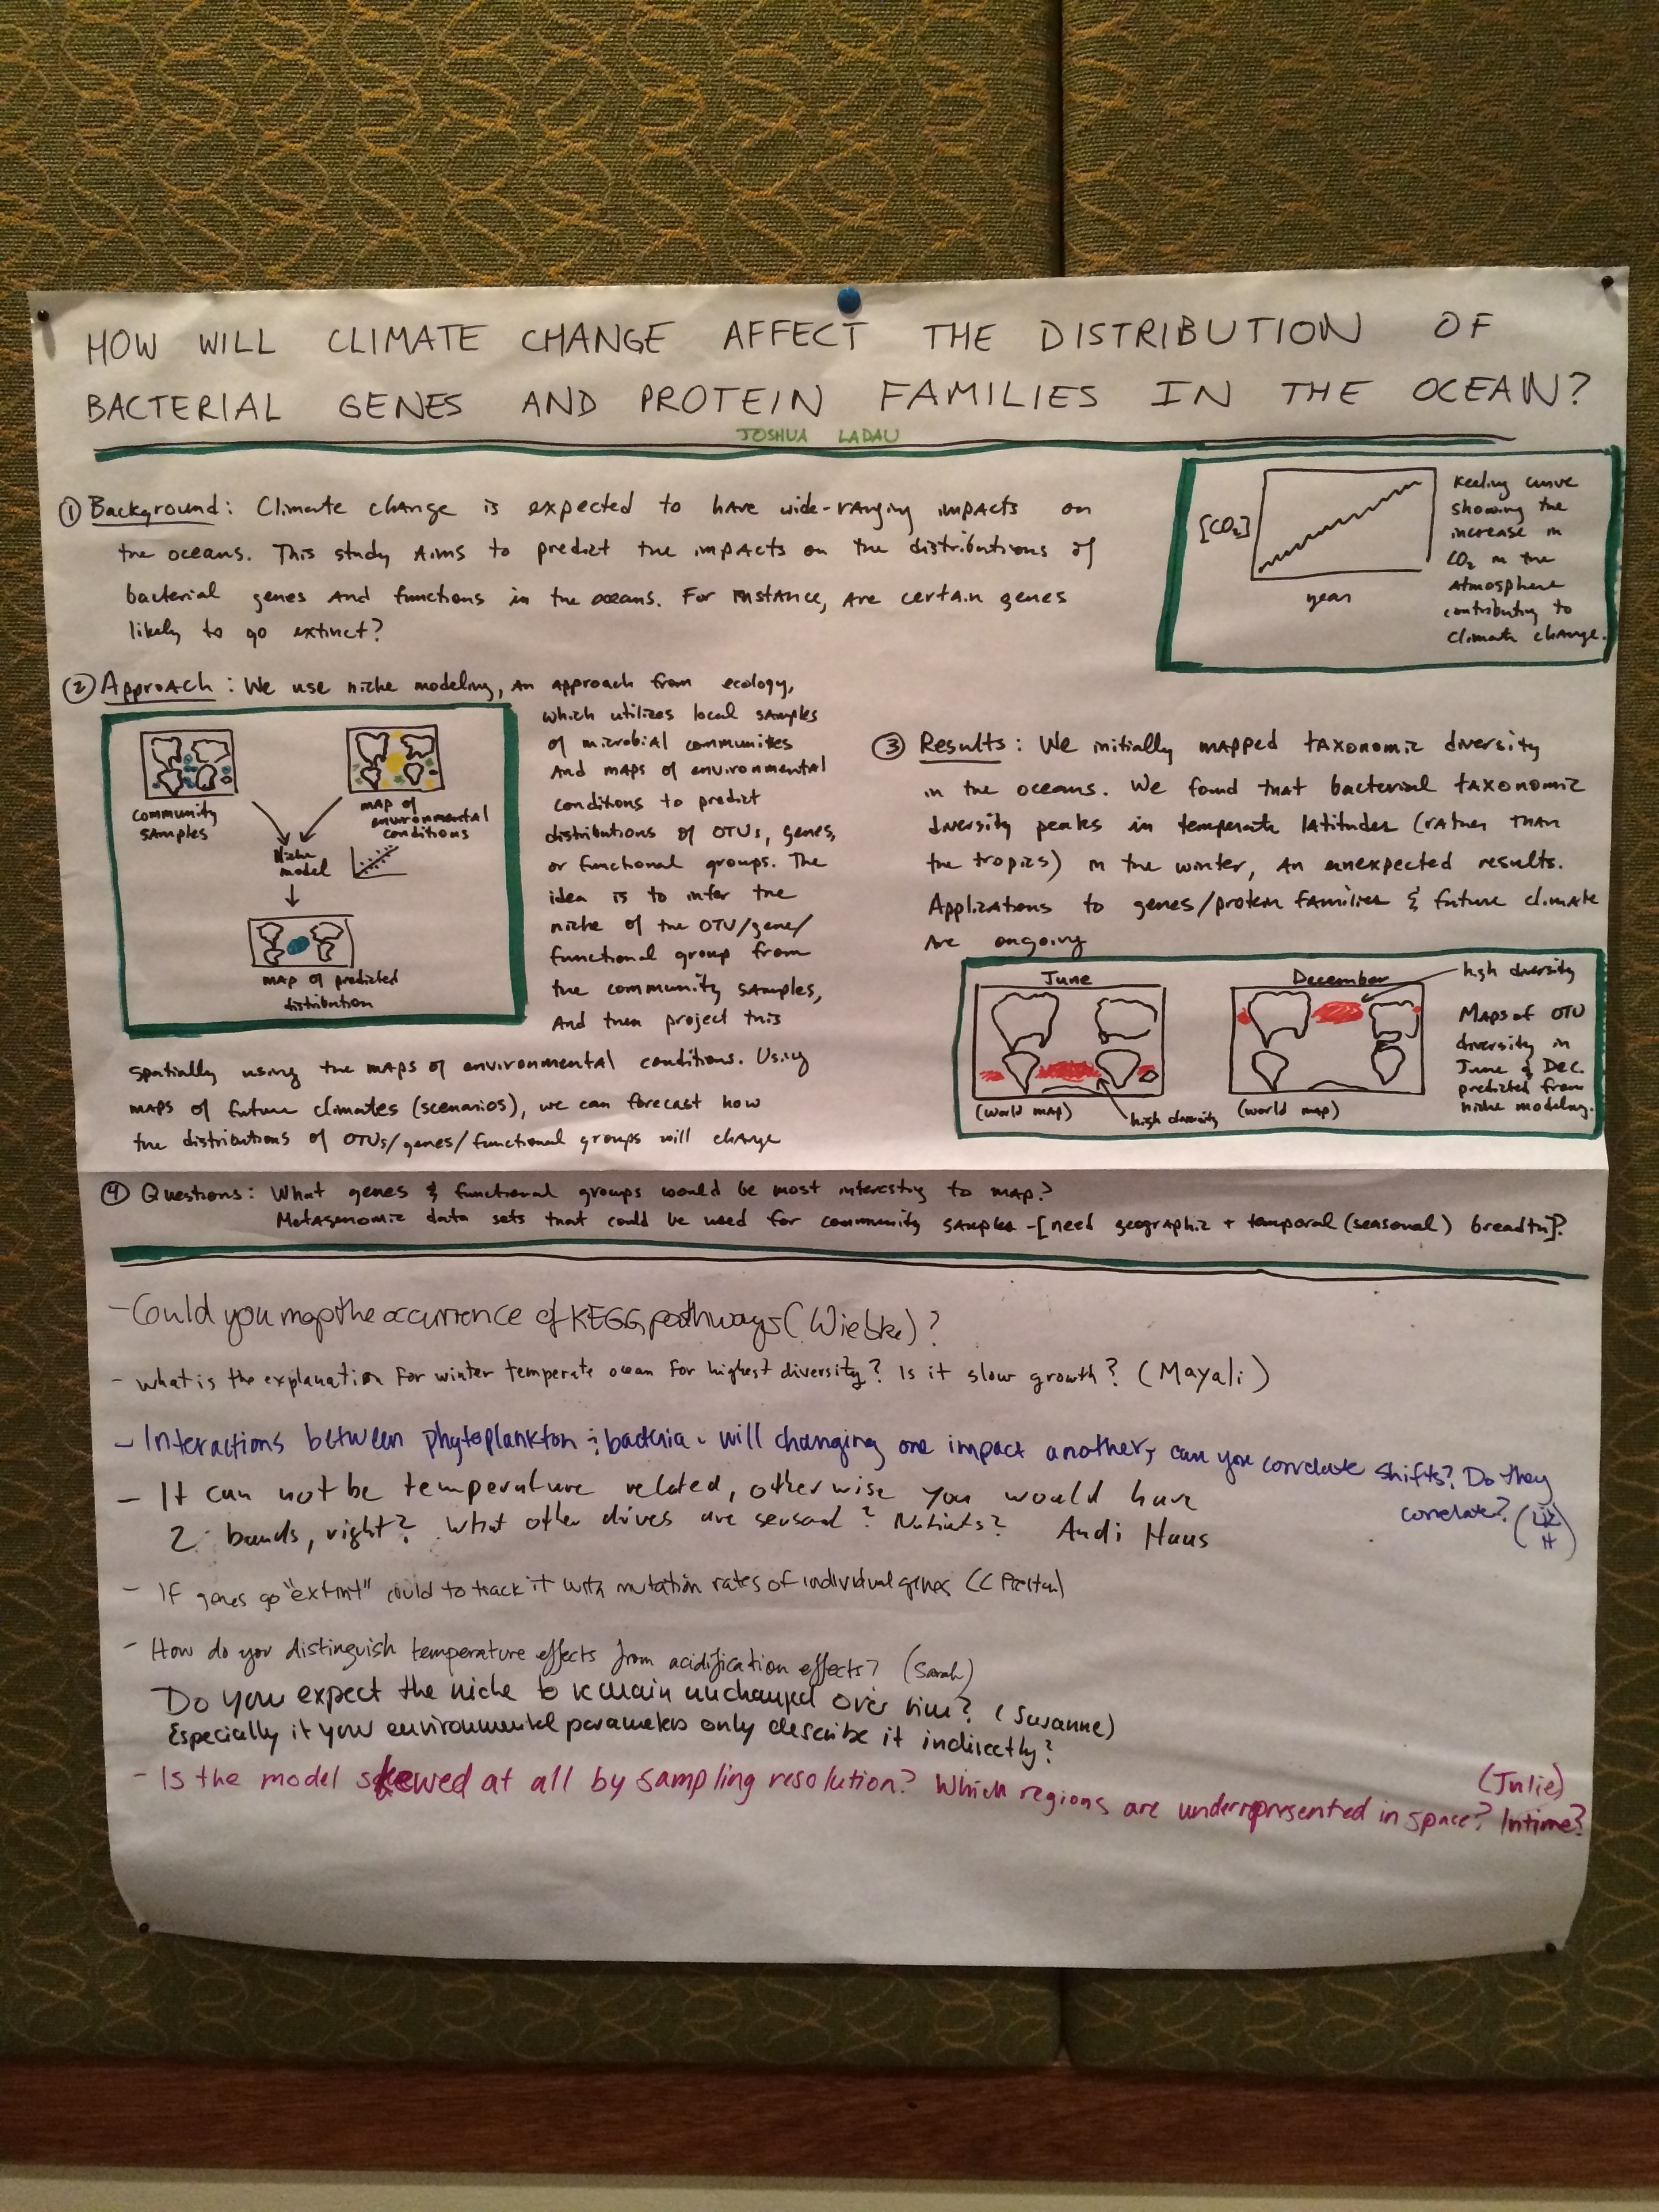 HOW WILL CLIMATE CHANGE AFFECT THE DISTRIBUTION OF
BACTERIAL GENES AND PROTEIN FAMILIES IN THE OCEAN?
JOSHUA LADAU
① Background: Climate change is expected to have wide-ranging impacts on
the oceans. This study aims to predict the impacts on the distributions of
bacterial genes and functions in the oceans. For instance, are certain genes
likely to go extinct?
[CO2]
year
Keeling curve
showing the
increase in
CO2 in the
atmosphere
contributing to
climate change.
② Approach: We use niche modeling, an approach from ecology,
which utilizes local samples
of microbial communities
and maps of environmental
conditions to predict
distributions of OTUs, genes,
or functional groups. The
idea is to infer the
niche of the OTU/gene/
functional group from
the community samples,
and then project this
spatially using the maps of environmental conditions. Using
maps of future climates (scenarios), we can forecast how
the distributions of OTUs/genes/functional groups will change
community
samples
map of
environmental
conditions
Niche
model
map of predicted
distribution
③ Results: We initially mapped taxonomic diversity
in the oceans. We found that bacterial taxonomic
diversity peaks in temperate latitudes (rather than
the tropics) in the winter, an unexpected results.
Applications to genes/protein families & future climate
are ongoing
June
(world map)
high diversity
December
(world map)
high diversity
Maps of OTU
diversity in
June & Dec.
predicted from
niche modeling.
④ Questions: What genes & functional groups would be most interesting to map?
Metagenomic data sets that could be used for community samples - [need geographic + temporal (seasonal) breadth]?
- Could you map the occurrence of KEGG pathways (Wiebke)?
- What is the explanation for winter temperate ocean for highest diversity? Is it slow growth? (Mayali)
- Interactions between phytoplankton & bacteria. will changing one impact another, can you correlate shifts? Do they
correlate? (Liz
H)
- It can not be temperature related, otherwise you would have
2 bands, right? What other drives are seasonal? Nutrients? Andi Haus
- If genes go "extint" could to track it with mutation rates of individual genes
- How do you distinguish temperature effects from acidification effects? (Sarah)
Do you expect the niche to remain unchanged over time? (Susanne)
Especially if your environmental parameters only describe it indirectly?
- Is the model skewed at all by sampling resolution? Which regions are underrepresented in space? In time?
(Julie)